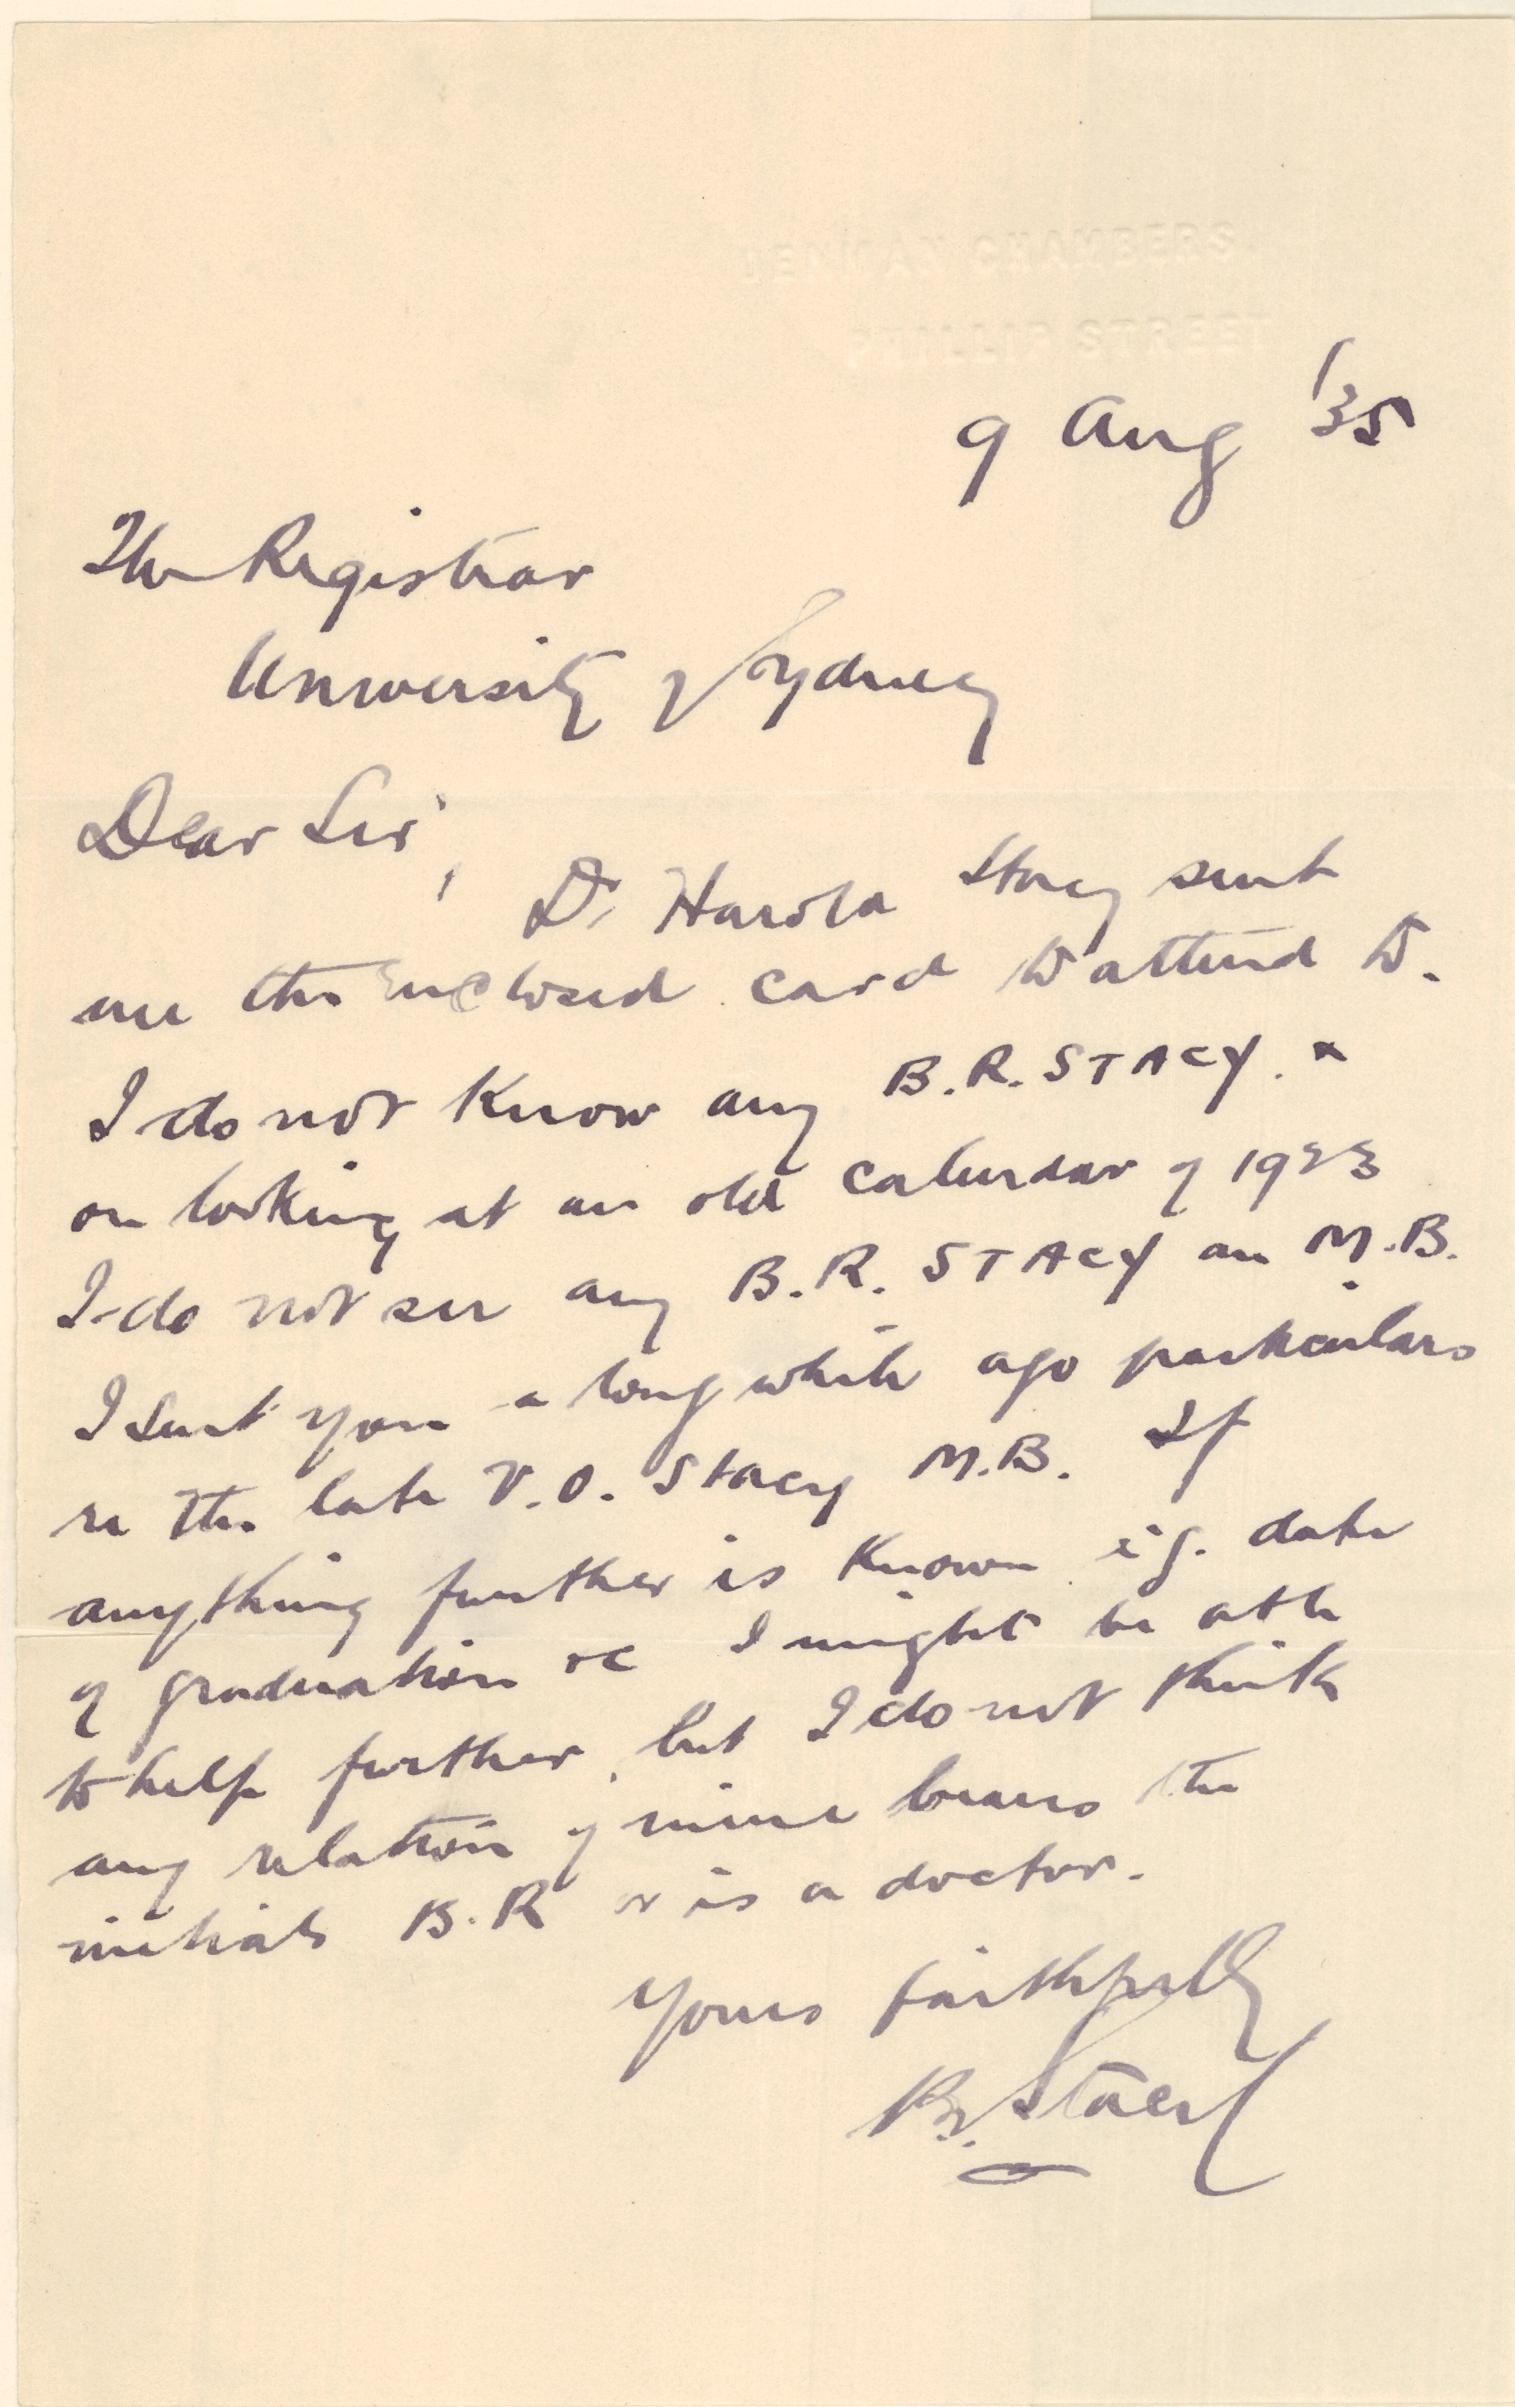 DENMAN CHAMBERS
PHILLIP STREET
9 Aug '35
The Registrar
University of Sydney
Dear Sir,
Dr Harold Stacy sent
me the enclosed card to attend to.
I do not know any B.R. STACY. &
on looking at an old calendar of 1923
I do not see any B.R. STACY an M.B.
I sent you a long while ago particulars
re the late V.O. Stacy M.B. If
anything further is known eg. date
of graduation &c I might be able
to help further, but I do not think
any relation of mine bears the
initials B.R or is a doctor.
Yours faithfully
B. Stacy